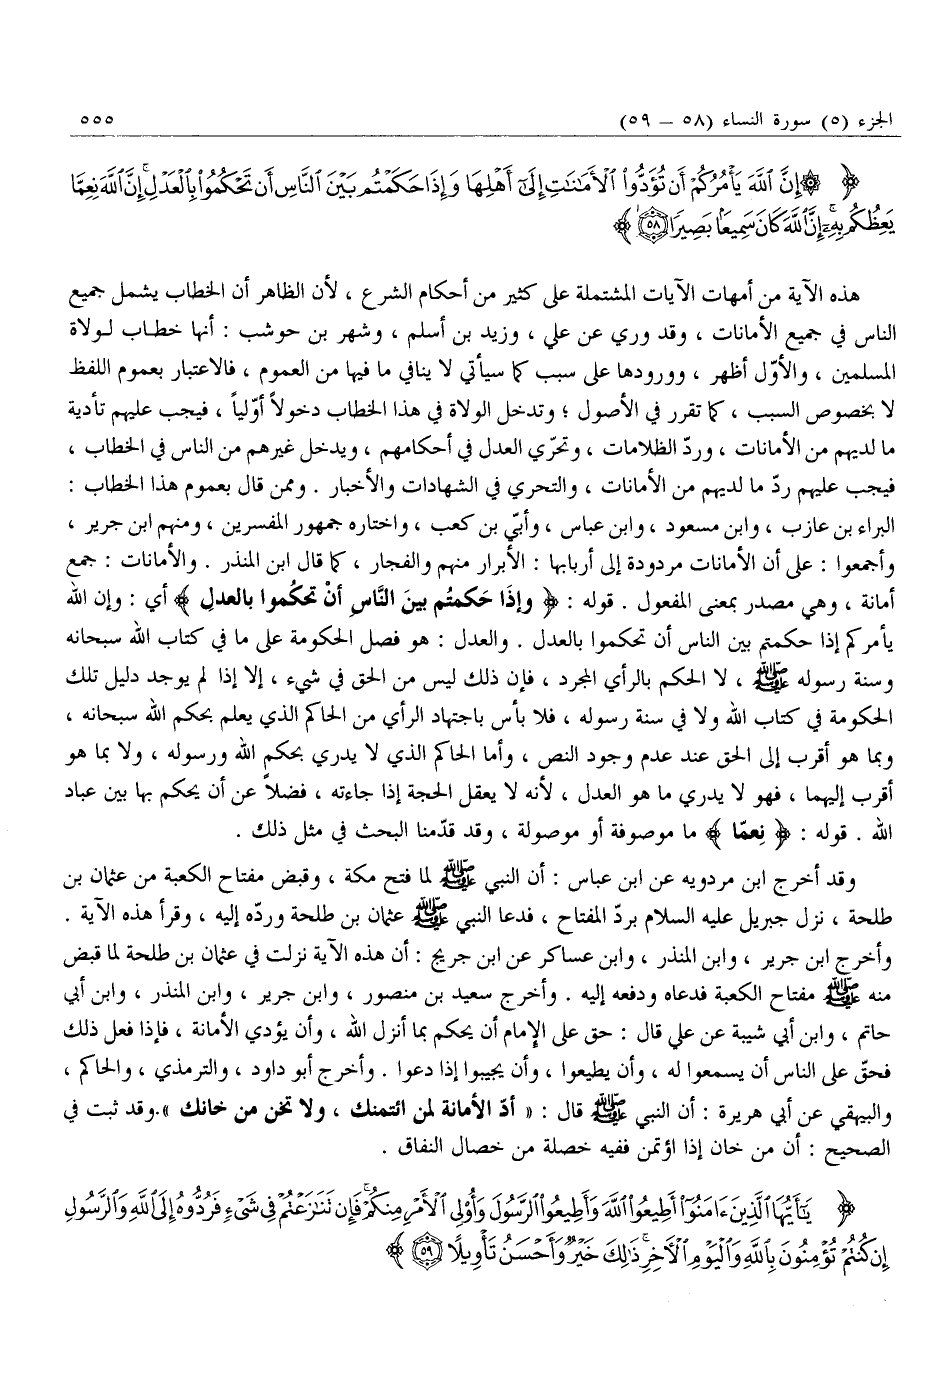 الجزء (٥) سورة النساء (٥٨ – ٥٩) ٥٥٥
﴿ ۞ إِنَّ ٱللَّهَ يَأْمُرُكُمْ أَن تُؤَدُّوا۟ ٱلْأَمَٰنَٰتِ إِلَىٰٓ أَهْلِهَا وَإِذَا حَكَمْتُم بَيْنَ ٱلنَّاسِ أَن تَحْكُمُوا۟ بِٱلْعَدْلِ ۚ إِنَّ ٱللَّهَ نِعِمَّا
يَعِظُكُم بِهِۦٓ ۗ إِنَّ ٱللَّهَ كَانَ سَمِيعًۢا بَصِيرًا ٥٨ ﴾
هذه الآية من أمهات الآيات المشتملة على كثير من أحكام الشرع ، لأن الظاهر أن الخطاب يشمل جميع
الناس في جميع الأمانات ، وقد وري عن علي ، وزيد بن أسلم ، وشهر بن حوشب : أنها خطاب لولاة
المسلمين ، والأوّل أظهر ، وورودها على سبب كما سيأتي لا ينافي ما فيها من العموم ، فالاعتبار بعموم اللفظ
لا بخصوص السبب ، كما تقرر في الأصول ؛ وتدخل الولاة في هذا الخطاب دخولاً أوّلياً ، فيجب عليهم تأدية
ما لديهم من الأمانات ، وردّ الظلامات ، وتحرّي العدل في أحكامهم ، ويدخل غيرهم من الناس في الخطاب ،
فيجب عليهم ردّ ما لديهم من الأمانات ، والتحري في الشهادات والأخبار . وممن قال بعموم هذا الخطاب :
البراء بن عازب ، وابن مسعود ، وابن عباس ، وأبيّ بن كعب ، واختاره جمهور المفسرين ، ومنهم ابن جرير ،
وأجمعوا : على أن الأمانات مردودة إلى أربابها : الأبرار منهم والفجار ، كما قال ابن المنذر . والأمانات : جمع
أمانة ، وهي مصدر بمعنى المفعول . قوله : ﴿ وإذَا حَكمتُم بينَ النَّاسِ أنْ تحكُموا بالعدلِ ﴾ أي : وإن الله
يأمركم إذا حكمتم بين الناس أن تحكموا بالعدل . والعدل : هو فصل الحكومة على ما في كتاب الله سبحانه
وسنة رسوله ﷺ ، لا الحكم بالرأي المجرد ، فإن ذلك ليس من الحق في شيء ، إلا إذا لم يوجد دليل تلك
الحكومة في كتاب الله ولا في سنة رسوله ، فلا بأس باجتهاد الرأي من الحاكم الذي يعلم بحكم الله سبحانه ،
وبما هو أقرب إلى الحق عند عدم وجود النص ، وأما الحاكم الذي لا يدري بحكم الله ورسوله ، ولا بما هو
أقرب إليهما ، فهو لا يدري ما هو العدل ، لأنه لا يعقل الحجة إذا جاءته ، فضلاً عن أن يحكم بها بين عباد
الله . قوله : ﴿ نِعمّا ﴾ ما موصوفة أو موصولة ، وقد قدّمنا البحث في مثل ذلك .
وقد أخرج ابن مردويه عن ابن عباس : أن النبي ﷺ لما فتح مكة ، وقبض مفتاح الكعبة من عثمان بن
طلحة ، نزل جبريل عليه السلام بردّ المفتاح ، فدعا النبي ﷺ عثمان بن طلحة وردّه إليه ، وقرأ هذه الآية .
وأخرج ابن جرير ، وابن المنذر ، وابن عساكر عن ابن جريج : أن هذه الآية نزلت في عثمان بن طلحة لما قبض
منه ﷺ مفتاح الكعبة فدعاه ودفعه إليه . وأخرج سعيد بن منصور ، وابن جرير ، وابن المنذر ، وابن أبي
حاتم ، وابن أبي شيبة عن علي قال : حق على الإمام أن يحكم بما أنزل الله ، وأن يؤدي الأمانة ، فإذا فعل ذلك
فحقّ على الناس أن يسمعوا له ، وأن يطيعوا ، وأن يجيبوا إذا دعوا . وأخرج أبو داود ، والترمذي ، والحاكم ،
والبيهقي عن أبي هريرة : أن النبي ﷺ قال : « أدّ الأمانة لمن ائتمنك ، ولا تخن من خانك ».وقد ثبت في
الصحيح : أن من خان إذا اؤتمن ففيه خصلة من خصال النفاق .
﴿ يَٰٓأَيُّهَا ٱلَّذِينَ ءَامَنُوٓا۟ أَطِيعُوا۟ ٱللَّهَ وَأَطِيعُوا۟ ٱلرَّسُولَ وَأُو۟لِى ٱلْأَمْرِ مِنكُمْ ۖ فَإِن تَنَٰزَعْتُمْ فِى شَىْءٍ فَرُدُّوهُ إِلَى ٱللَّهِ وَٱلرَّسُولِ
إِن كُنتُمْ تُؤْمِنُونَ بِٱللَّهِ وَٱلْيَوْمِ ٱلْءَاخِرِ ۚ ذَٰلِكَ خَيْرٌ وَأَحْسَنُ تَأْوِيلًا ٥٩ ﴾